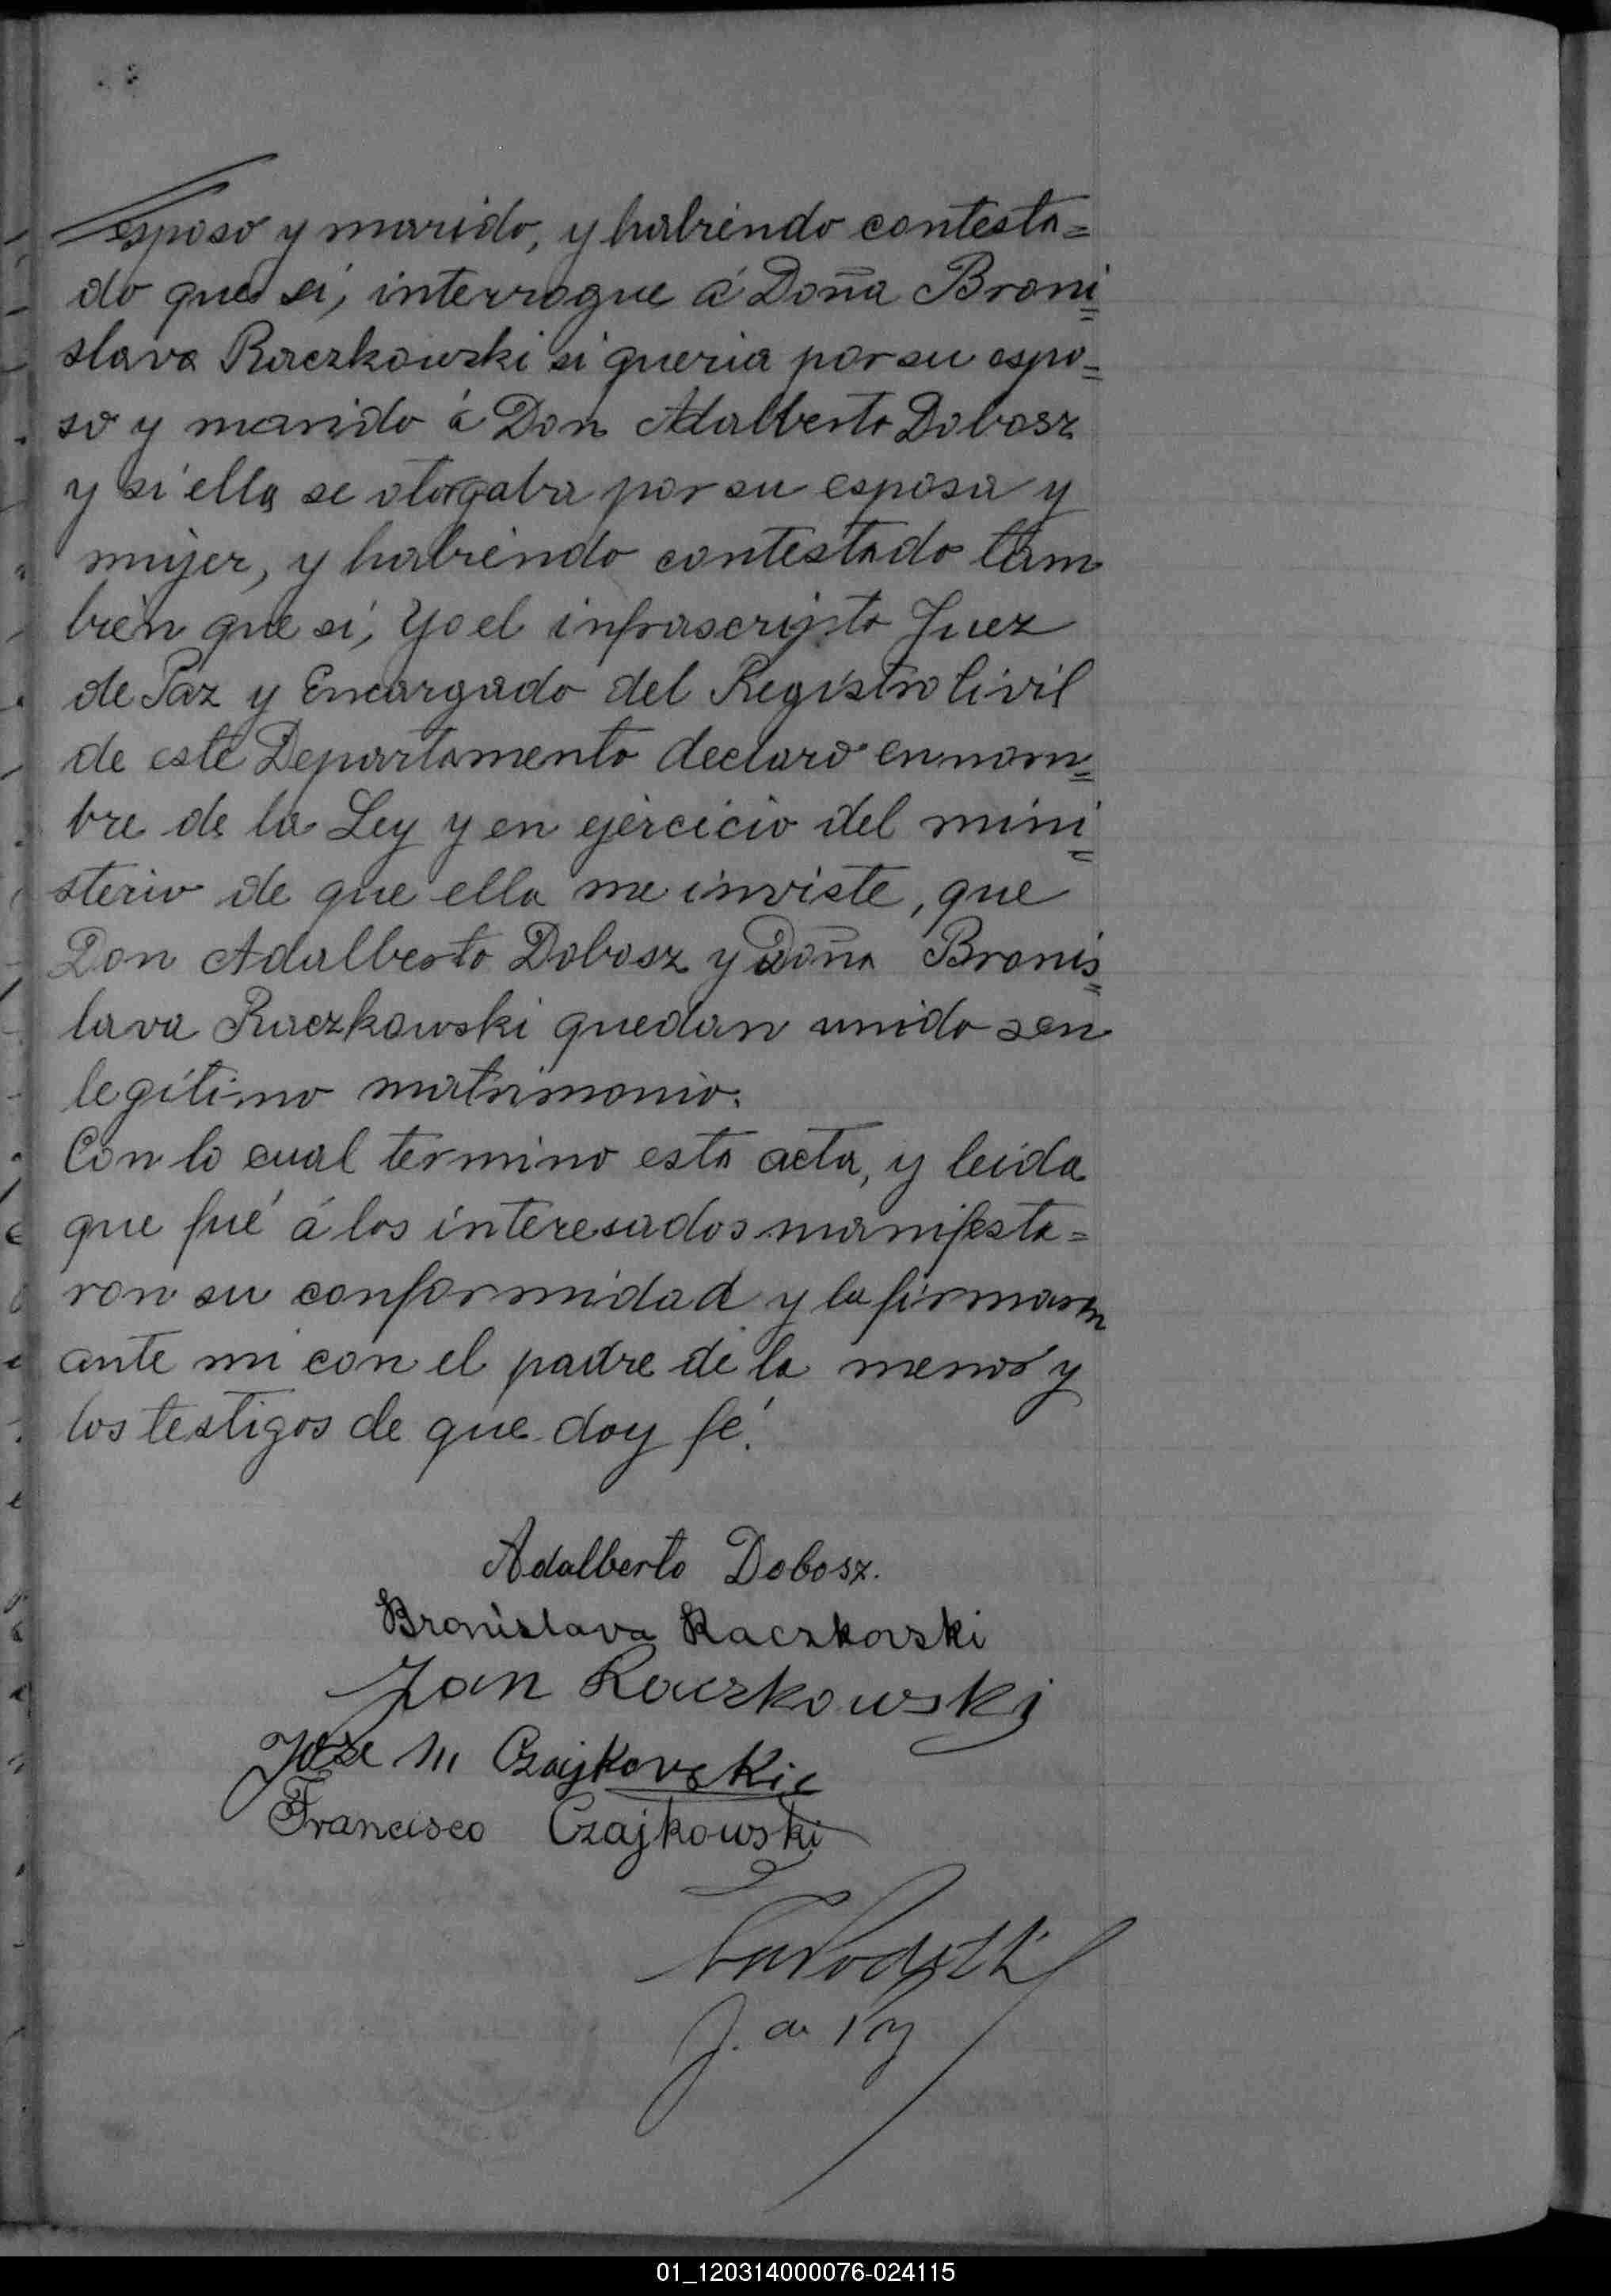 esposo y marido, y habiendo contesta=
do que si, interrogue á Doña Broni=
slava Raczkowski si queria por su espo=
so y marido á Don Adalberto Dobosz
y si ella se otorgaba por su esposa y
mujer, y habiendo contestado tam
bien que si, Yo el infrascripto Juez
de Paz y Encargado del Registro Civil
de este Departamento declaro en nom=
bre de la Ley y en ejercicio del mini=
sterio de que ella me inviste, que
Don Adalberto Dobosz y Doña Bronis=
lava Raczkowski quedan unido s en
legítimo matrimonio.
Con lo cual termino esta acta, y leida
que fué á los interesados manifesta=
ron su conformidad y la firmaron
ante mi con el padre de la menor y
los testigos de que doy fé.
Adalberto Dobosz.
Bronislava Raczkowski
Jan Raczkowski
Jose M Czajkovskie
Francisco Czajkowski
J. de Paz
01_120314000076-024115